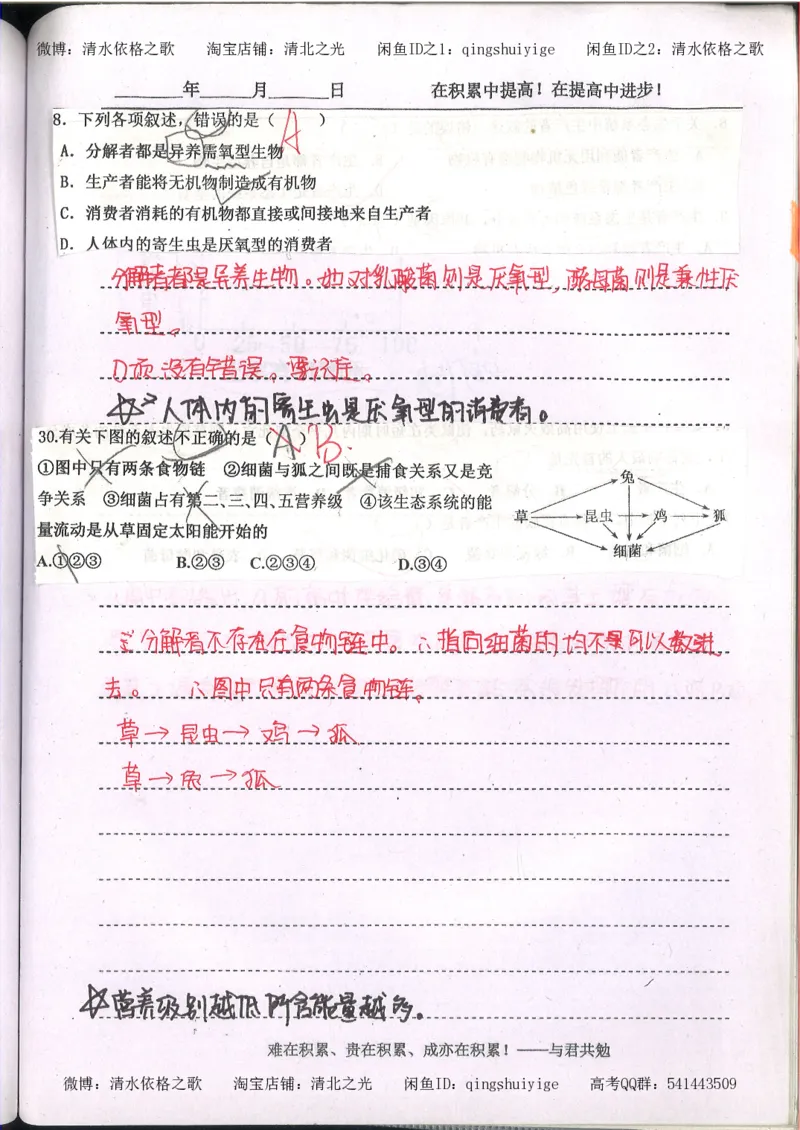 微博：清水依格之歌 淘宝店铺：清北之光 闲鱼ID之1：qingshuiyige 闲鱼ID之2：清水依格之歌
______年______月______日 在积累中提高！在提高中进步！
8．下列各项叙述，错误的是（ ） A
A．分解者都是异养需氧型生物
B．生产者能将无机物制造成有机物
C．消费者消耗的有机物都直接或间接地来自生产者
D．人体内的寄生虫是厌氧型的消费者
分解者都是异养生物。也对乳酸菌则是厌氧型，酵母菌则是兼性厌
氧型。
D项没有错误。要记住。
☆ 人体内的寄生虫是厌氧型的消费者。
30.有关下图的叙述不正确的是（A）B
①图中只有两条食物链 ②细菌与狐之间既是捕食关系又是竞
争关系 ③细菌占有第二、三、四、五营养级 ④该生态系统的能
量流动是从草固定太阳能开始的
A.①②③ B.②③ C.②③④ D.③④
兔
草 昆虫 鸡 狐
细菌
分解者不存在在食物链中。∴指向细菌的均不可以数进
去。 ∴图中只有两条食物链。
草→昆虫→鸡→狐
草→兔→狐
☆营养级别越低所含能量越多。
难在积累、贵在积累、成亦在积累！——与君共勉
微博：清水依格之歌 淘宝店铺：清北之光 闲鱼ID：qingshuiyige 高考QQ群：541443509